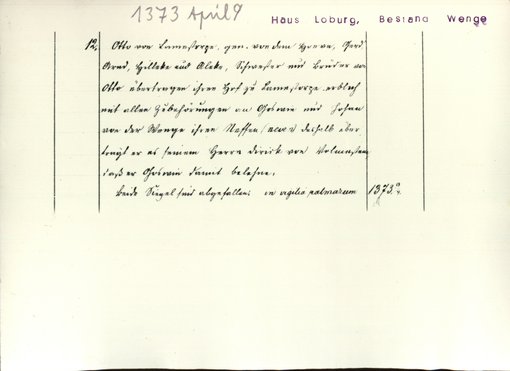 1373 April 9
Haus Loburg, Bestand Wenge
12. Otto von Lamestorpe, gen. von dem Hoeve, Gerd
Arnd, Hilleke und Aleke, Schwester und Brüder von
Otto übertragen ihren Hof zu Lamestorpe erblich
mit allen Zubehörungen an Goswin und Johan
von der Wenge ihren Neffen deshalb über
trägt er es seinem Herrn Dirick von Volmestein
daß er Goswin damit belehne.
Beide Siegel sind abgefallen. in vigilia palmarum 1373.